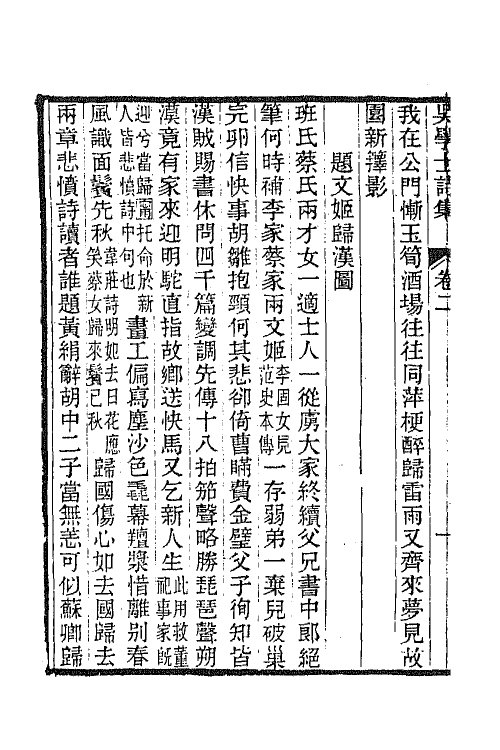 吳學士詩集 卷二 一
我在公門慚玉筍酒場往往同萍梗醉歸雷雨又齊來夢見故
園新籜影
題文姬歸漢圖
班氏蔡氏兩才女一適士人一從虜大家終續父兄書中郎絕
筆何時補李家蔡家兩文姬李固女見范史本傳一存弱弟一棄兒破巢
完卵信快事胡雛抱頸何其悲卻倚曹瞞費金璧父子徇知皆
漢賊賜書休問四千篇變調先傳十八拍笳聲略勝琵琶聲朔
漠竟有家來迎明駝直指故鄉送快馬又乞新人生此用救董祀事家既
迎兮當歸寧托命於新人皆悲憤詩中句也畫工偏寫塵沙色毳幕羶漿惜離別春
風識面鬢先秋韋莊詩明妃去日花應笑蔡女歸來鬢已秋歸國傷心如去國歸去
兩章悲憤詩讀者誰題黃絹辭胡中二子當無恙可似蘇卿歸